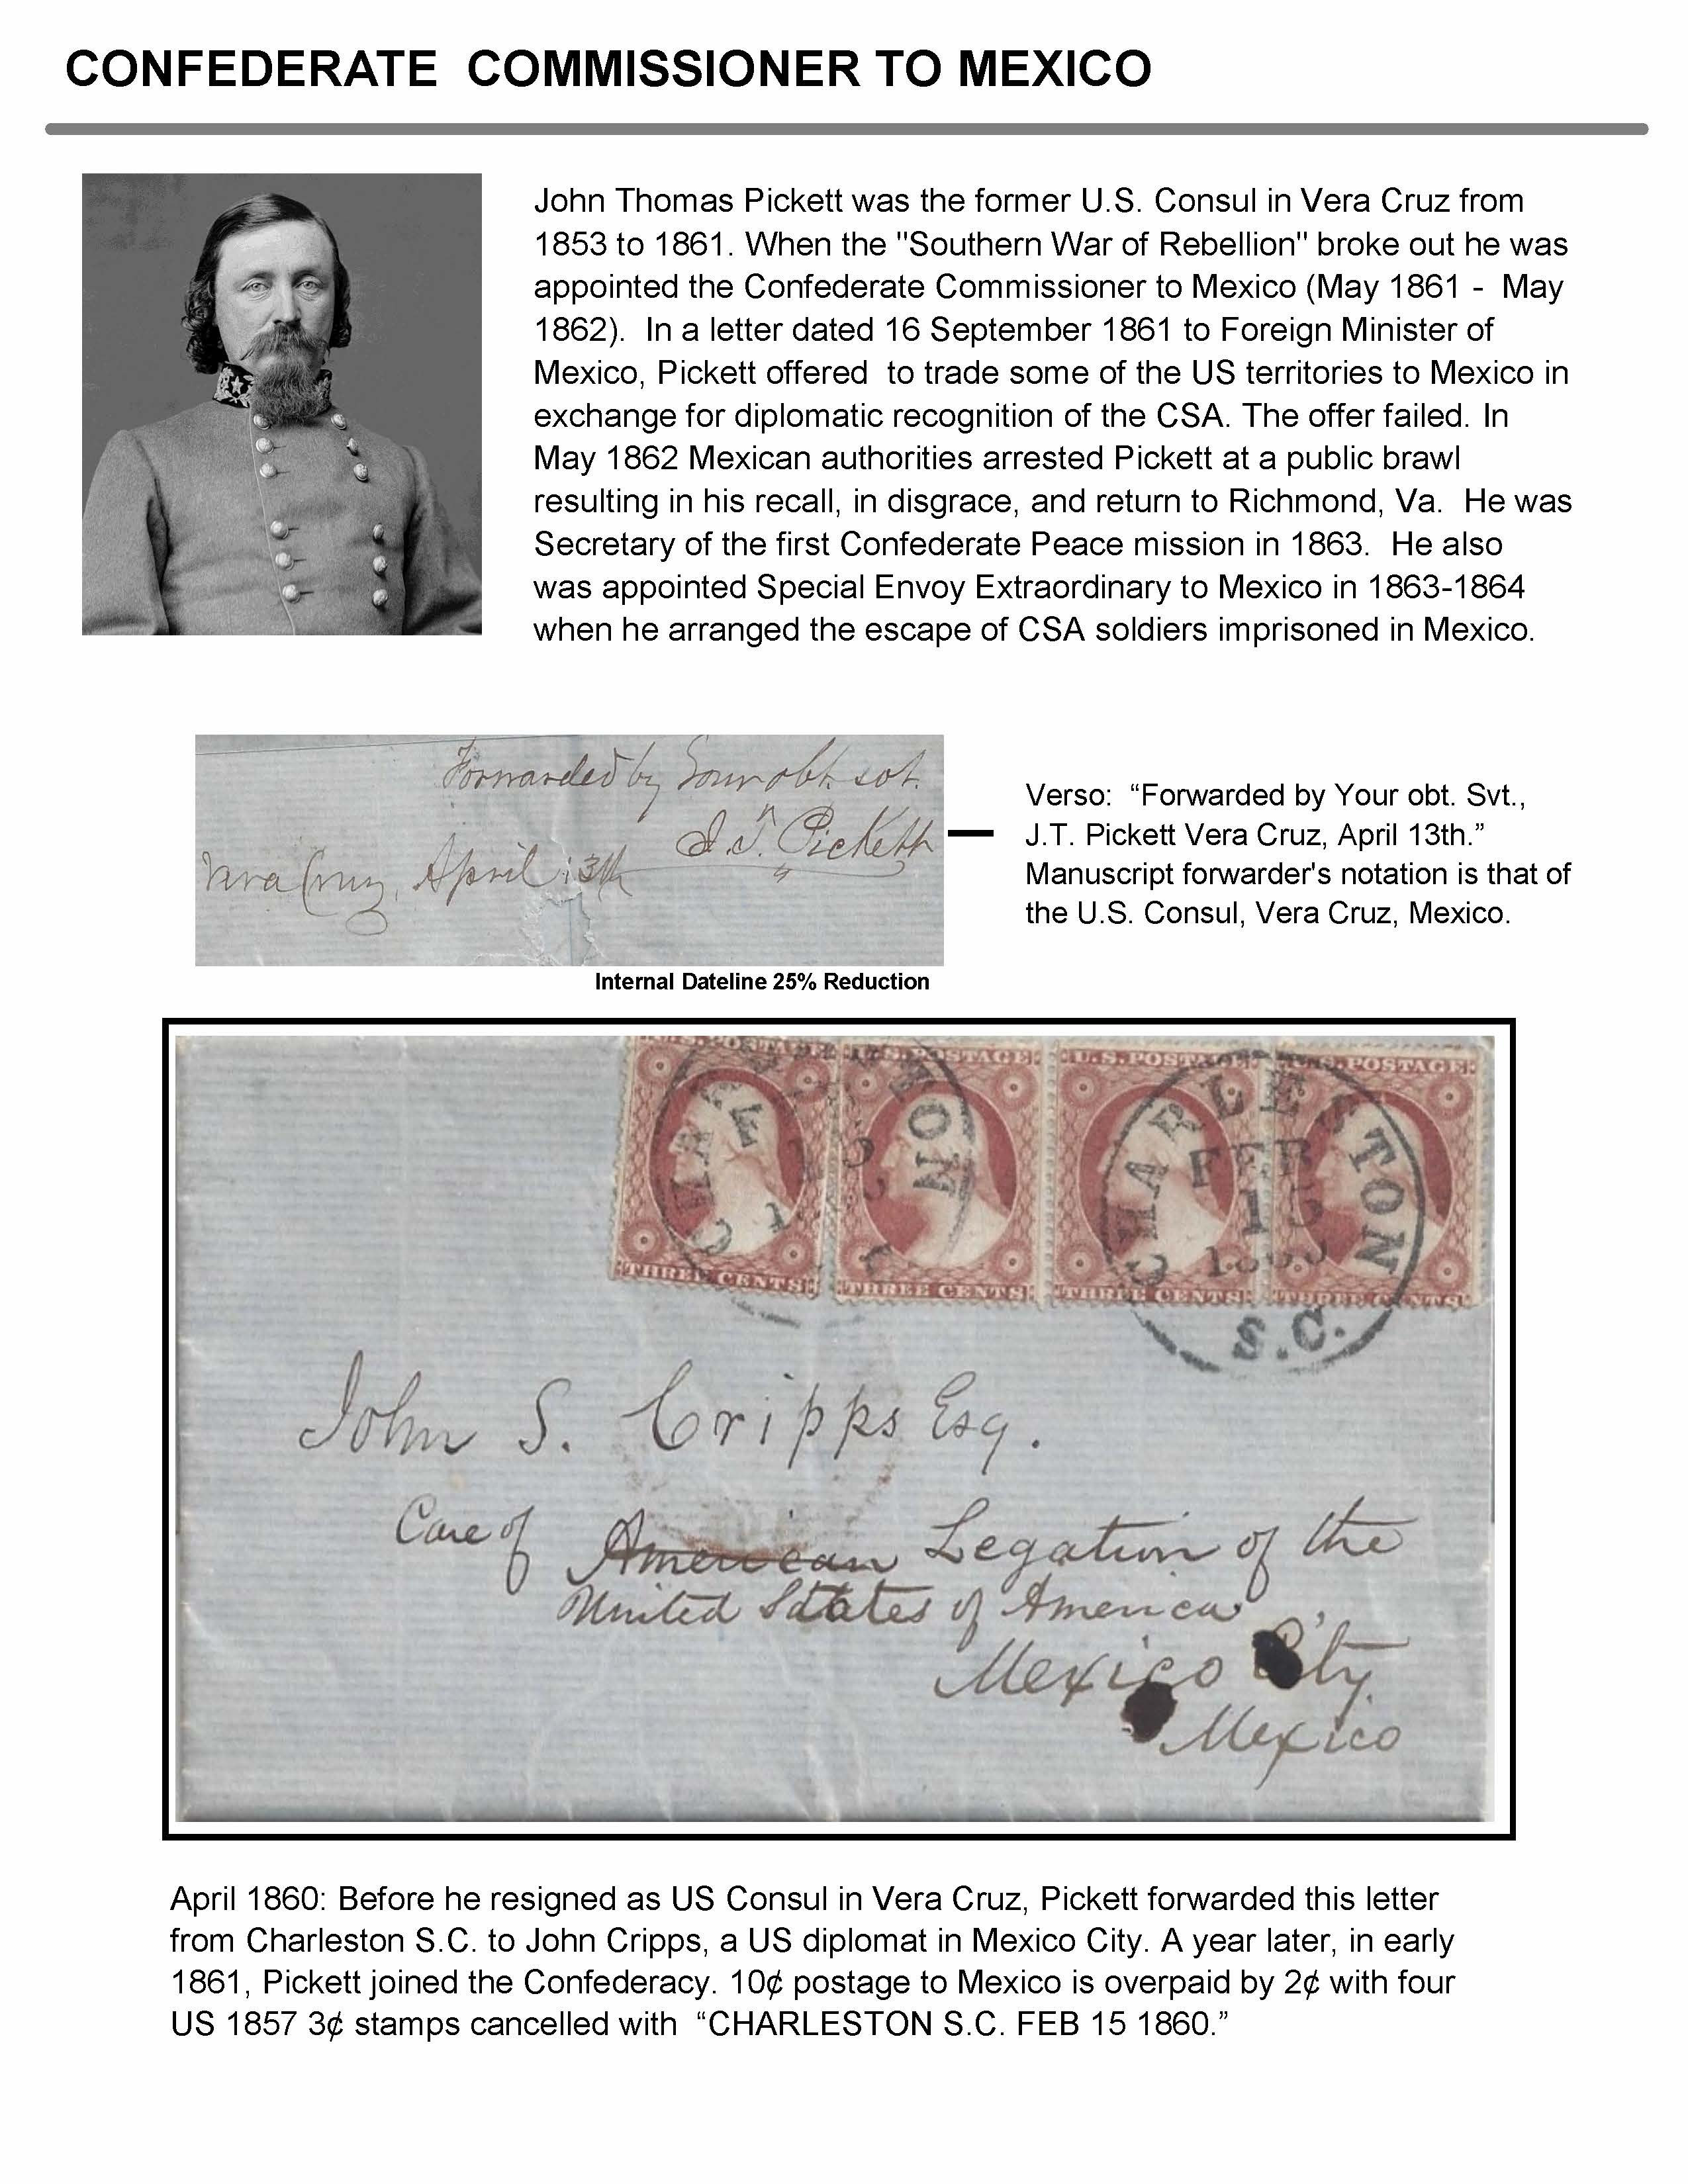 CONFEDERATE COMMISSIONER TO MEXICO
John Thomas Pickett was the former U.S. Consul in Vera Cruz from
1853 to 1861. When the "Southern War of Rebellion" broke out he was
appointed the Confederate Commissioner to Mexico (May 1861 - May
1862). In a letter dated 16 September 1861 to Foreign Minister of
Mexico, Pickett offered to trade some of the US territories to Mexico in
exchange for diplomatic recognition of the CSA. The offer failed. In
May 1862 Mexican authorities arrested Pickett at a public brawl
resulting in his recall, in disgrace, and return to Richmond, Va. He was
Secretary of the first Confederate Peace mission in 1863. He also
was appointed Special Envoy Extraordinary to Mexico in 1863-1864
when he arranged the escape of CSA soldiers imprisoned in Mexico.
Forwarded by Your obt. svt.
J.T. Pickett
Vera Cruz, April 13th
Verso: “Forwarded by Your obt. Svt.,
J.T. Pickett Vera Cruz, April 13th.”
Manuscript forwarder's notation is that of
the U.S. Consul, Vera Cruz, Mexico.
Internal Dateline 25% Reduction
U.S. POSTAGE U.S. POSTAGE U.S. POSTAGE U.S. POSTAGE
CHARLESTON
CHARLESTON
FEB
15
1860
THREE CENTS THREE CENTS THREE CENTS THREE CENTS
S.C.
John S. Cripps Esq.
Care of American Legation of the
United States of America,
Mexico City
Mexico
April 1860: Before he resigned as US Consul in Vera Cruz, Pickett forwarded this letter
from Charleston S.C. to John Cripps, a US diplomat in Mexico City. A year later, in early
1861, Pickett joined the Confederacy. 10¢ postage to Mexico is overpaid by 2¢ with four
US 1857 3¢ stamps cancelled with “CHARLESTON S.C. FEB 15 1860.”